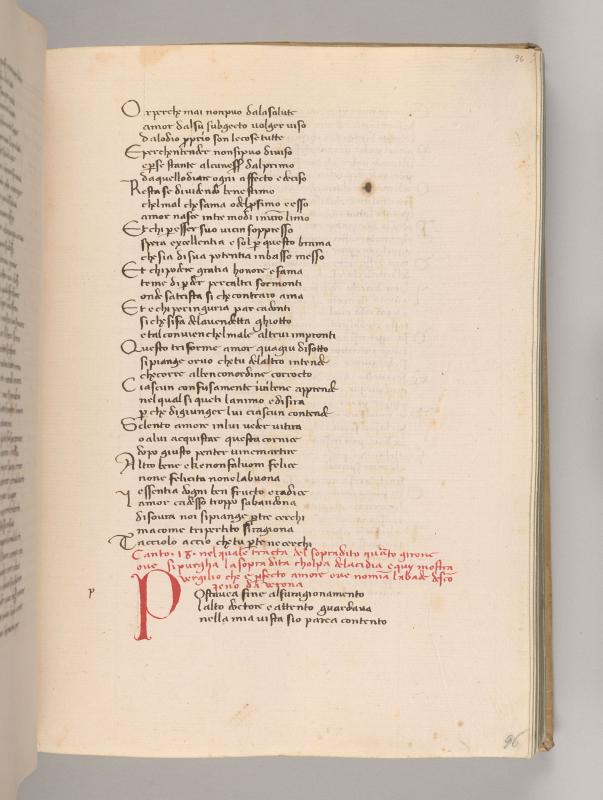 96
Or perche mai non puo dala salute
amor dal su subgecto volger viso
dal odio proprio son le cose tutte
E perche intender non si puo diviso
e per se stante alcun esser dal primo
da quello odiare ogni affecto e deciso
Resta se dividendo bene stimo
chel mal che sama o del pssimo e esso
amor nasce in tre modi in vostro limo
Et chi per esser suo vicin soppresso
spera excellentia e sol per questo brama
che sia di sua potentia in basso messo
Et chi podere gratia honore e fama
teme di perder perc altri sormonti
onde sattrista si che contraro ama
Et e chi per ingiuria par cadonti
si che si fa dela vendetta ghiotto
e tal convien chel male altrui impronti
Questo triforme amor qua giu disotto
si piange or vo che tu del altro intende
che corre al ben con ordine corrocto
Ciascun confusamente un bene apprende
nel qual si queti lanimo e disira
per che di giunger lui ciascun contende
Se lento amore in lui veder vi tira
o a lui acquistar questa cornice
dopo giusto penter vi ne martira
Altro bene e che non fa luom felice
non e felicita non e la buona
essentia dogni ben fructo e radice
Lamor cad esso troppo sabandona
di sovra noi si piange per tre cerchi
ma come tripertito si ragiona
Tacciolo accio che tu per te ne cerchi
Canto . 18 . nel quale tracta del sopradito quarto girone
ove si purgha la sopradita cholpa delacidia e quivi mostra
vergilio che e perfecto amore ove nomina labade
zeno da verona
p
POsto avea fine al su ragionamento
lalto doctore e attento guardava
nella mia vista sio parea contento
96